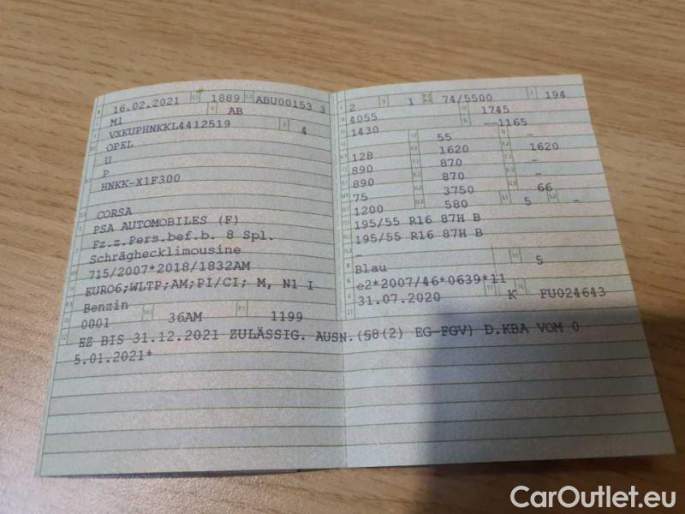 16.02.2021 1889 ABU00153 3
M1 AB
VXKUPHNKKL4412519 4
OPEL
U
P
HNKK-X1F300
CORSA
PSA AUTOMOBILES (F)
Fz.z.Pers.bef.b. 8 Spl.
Schräghecklimousine
715/2007*2018/1832AM
EURO6;WLTP;AM;PI/CI; M, N1 I
Benzin
0001 36AM 1199
EZ BIS 31.12.2021 ZULÄSSIG. AUSN.(§8(2) EG-FGV) D.KBA VOM 0
5.01.2021*
2 1 74/5500 194
4055 1745
1430 -1165
55 -
128 1620 1620
890 870 -
890 870 -
75 3750 66
1200 580 5 -
195/55 R16 87H B
195/55 R16 87H B
-
Blau 5
e2*2007/46*0639*11
31.07.2020 K FU024643
CarOutlet.eu